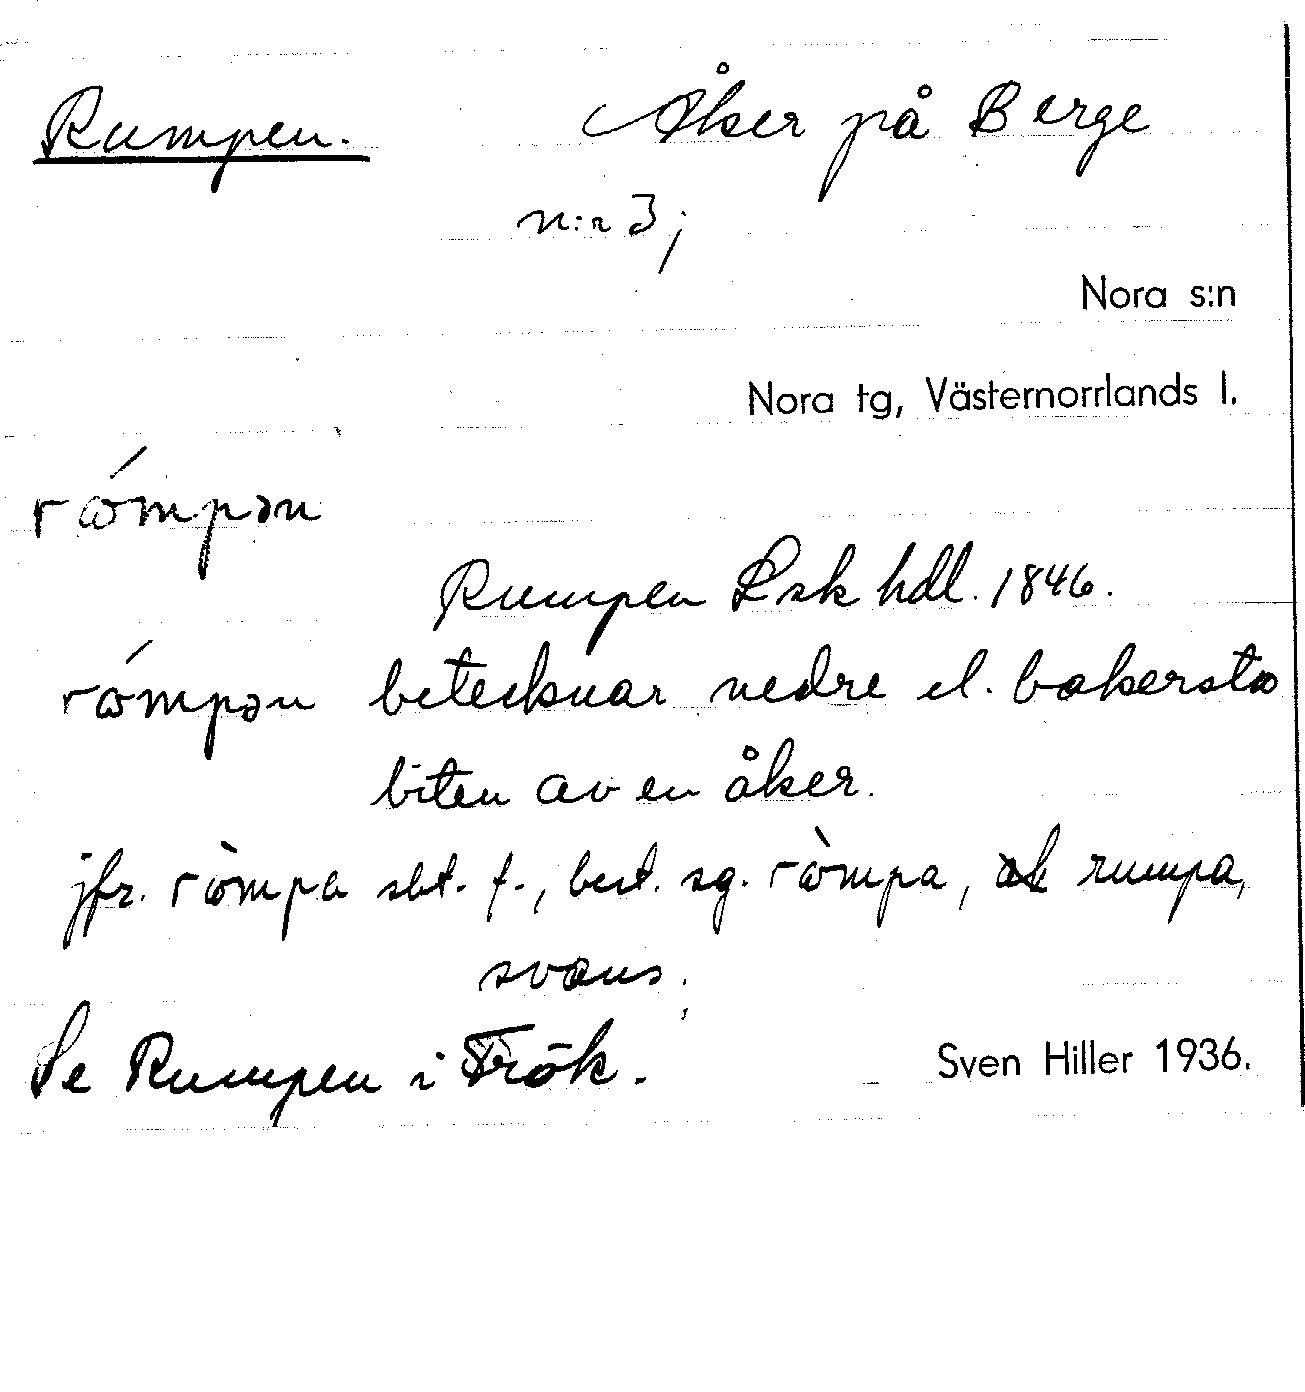 Rumpen. Åker på Berge
n:r 3;
Nora s:n
Nora tg, Västernorrlands l.
rωmpən
Rumpen Lsk hdl. 1846.
rωmpən betecknar nedre el. bakersta
biten av en åker.
jfr. rωmpa sbt. f., best. sg. rωmpa, rumpa,
svans.
Se Rumpen i Frök.
Sven Hiller 1936.